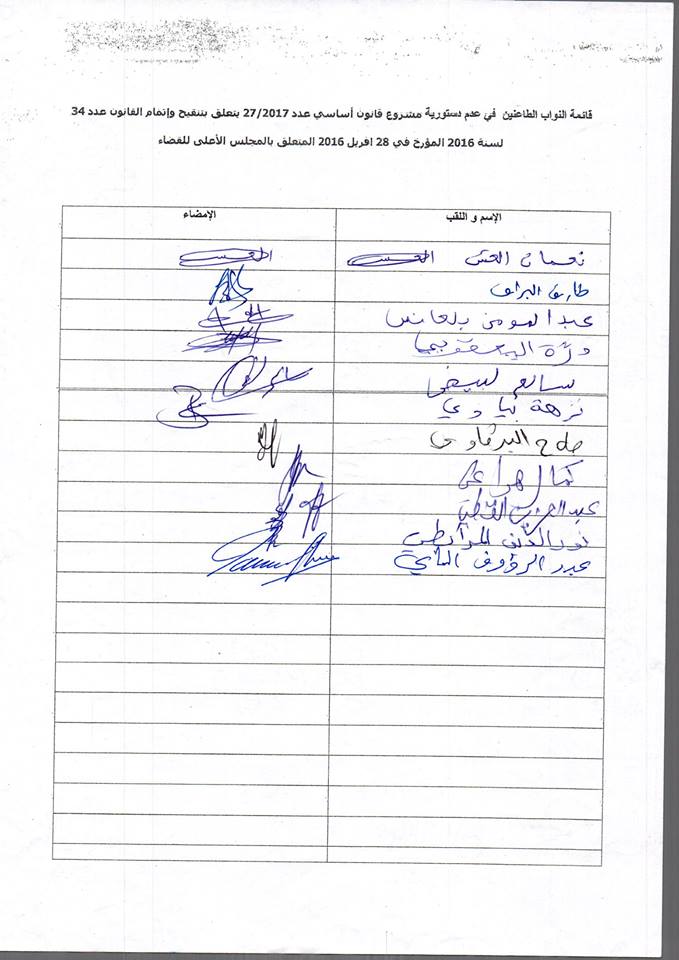 قائمة النواب الطاعنين في عدم دستورية مشروع قانون أساسي عدد 27/2017 يتعلق بتنقيح وإتمام القانون عدد 34
لسنة 2016 المؤرخ في 28 افريل 2016 المتعلق بالمجلس الأعلى للقضاء
الإسم و اللقب الإمضاء
نعمان العش العش العش
طارق البراق
عبد المومن بلعانس
درّة اليعقوبي
سالم لبيض
نزهة بياوي
صلاح البرقاوي
كمال هراغي
عبد العزيز القطي
نور الدين المرابطي
عبد الرؤوف الماي